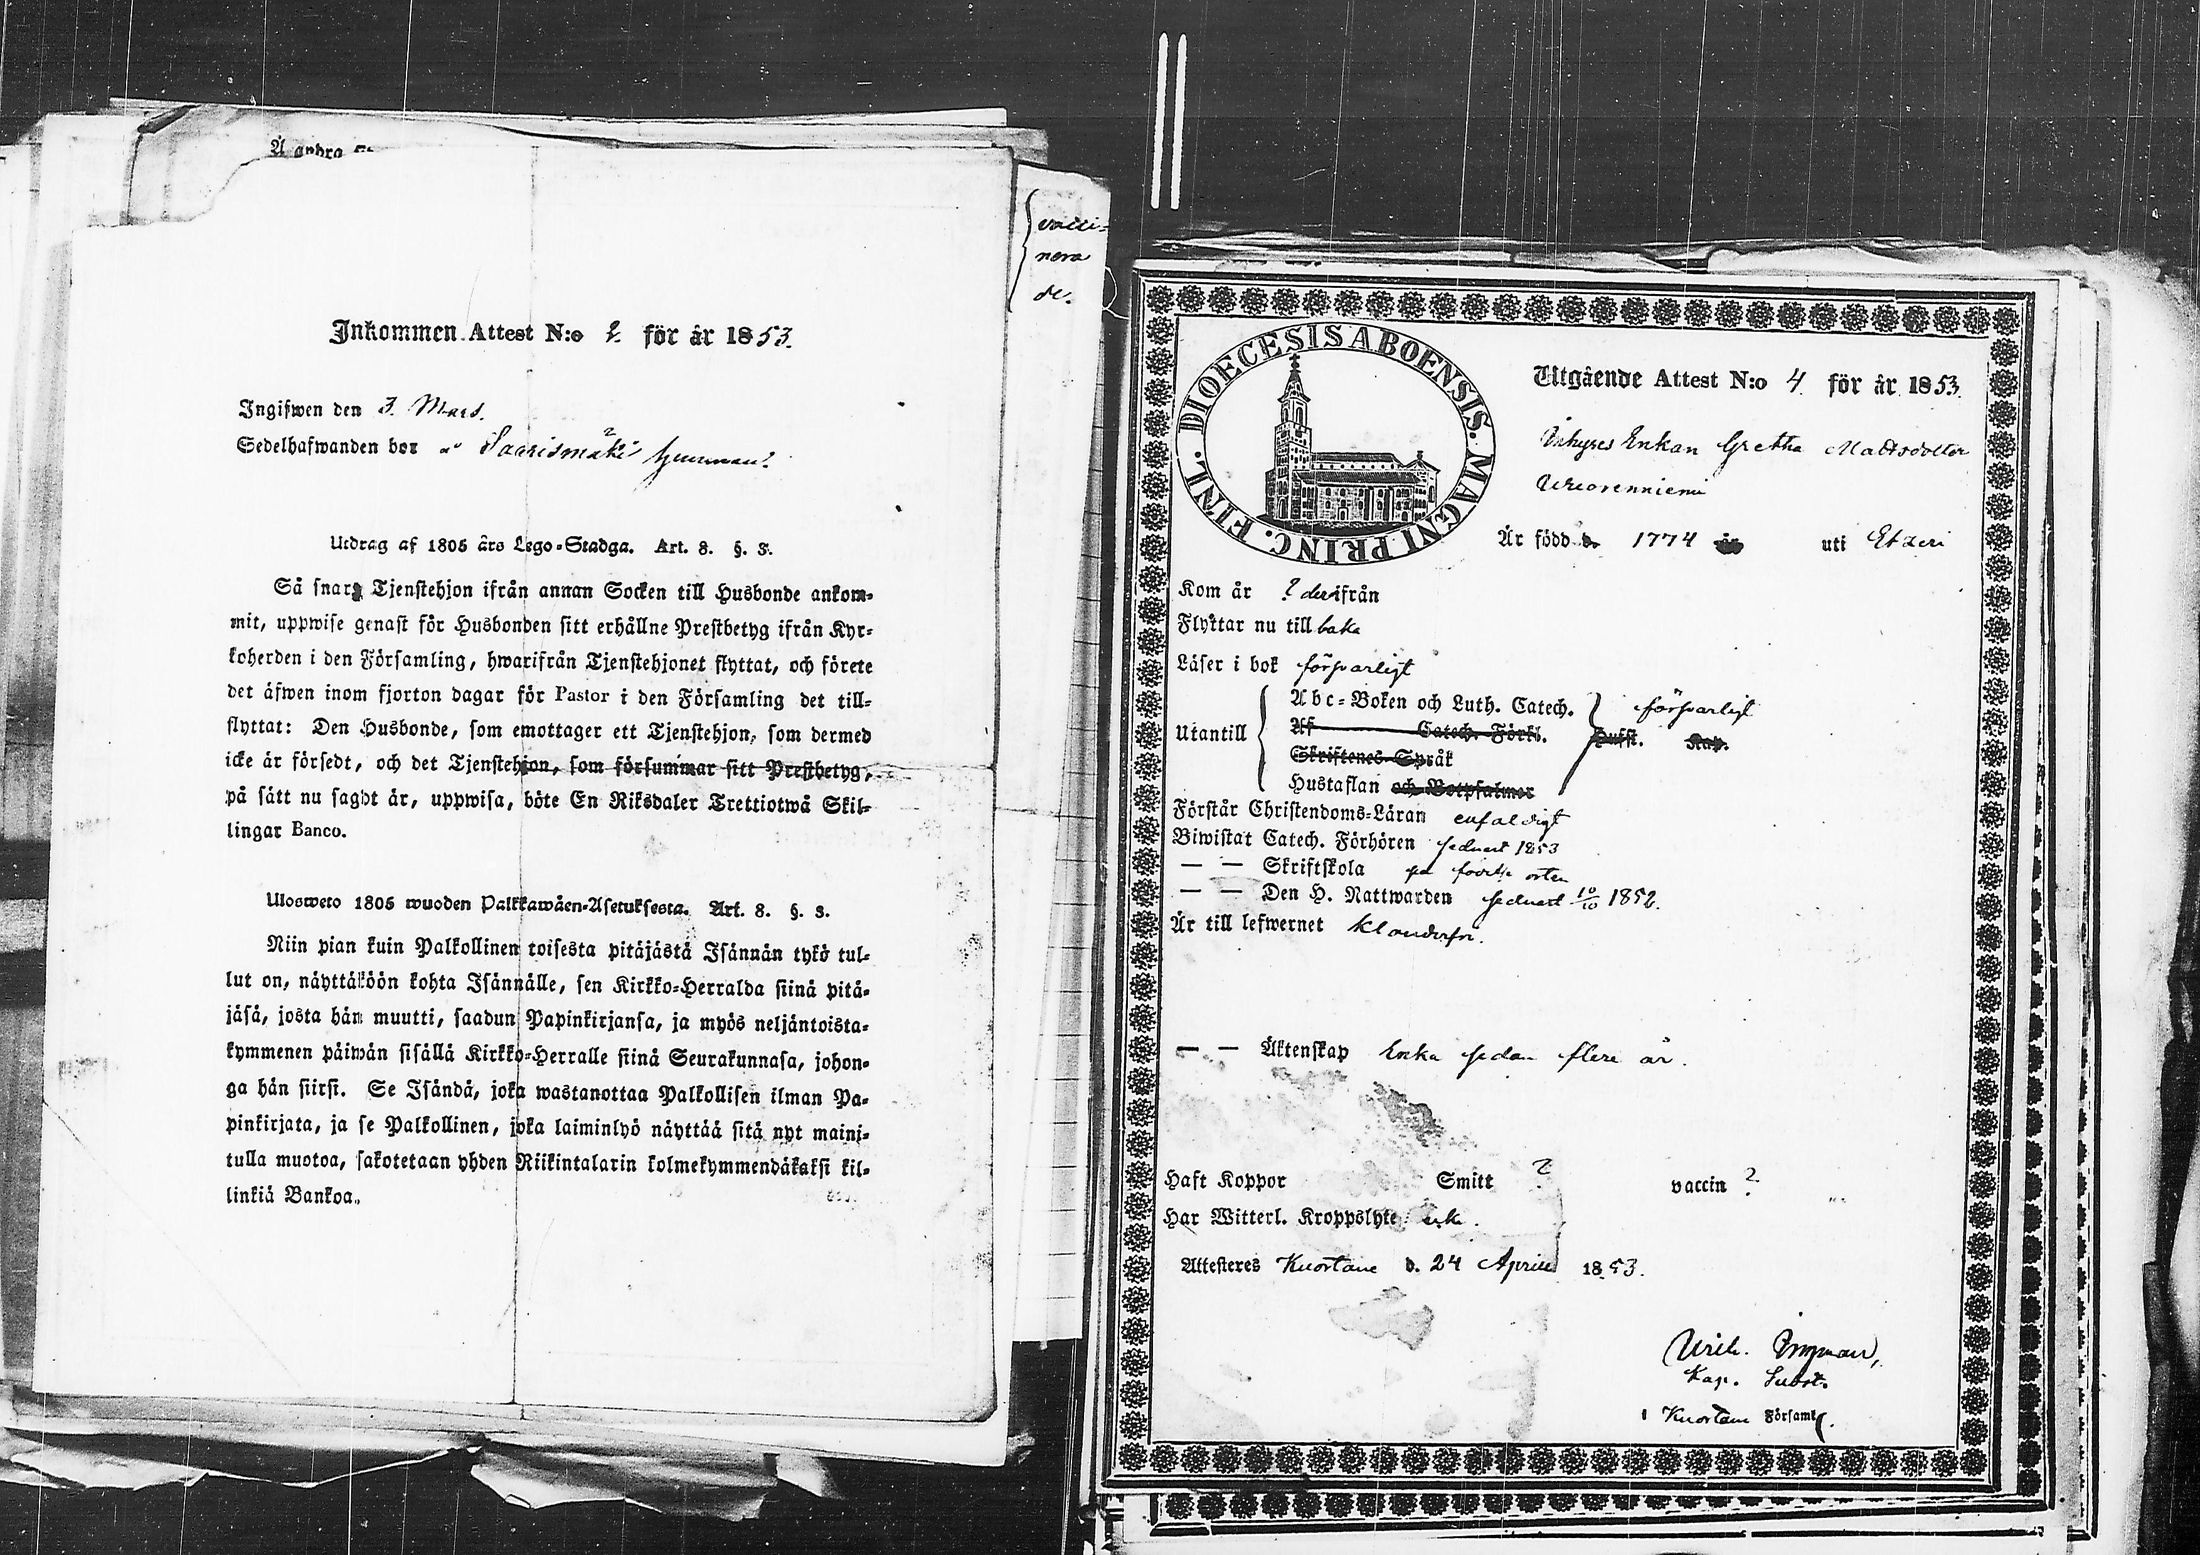 Inkommen Attest N:o 2 för år 1853.
Ingifwen den 3. Mars.
Sedelhafwanden bor Saarismäki
Utdrag af 1805 års Lego-Stadga. Art. 8. §. 3.
Så snart Tjenstehjon ifrån annan Socken till Husbonde ankom-
mit, uppwise genast för Husbonden sitt erhållne Prestbetyg ifrån Kyr-
koherden i den Församling, hwarifrån Tjenstehjonet flyttat, och förete
det äfwen inom fjorton dagar för Pastor i den Församling det till-
flyttat: Den Husbonde, som emottager ett Tjenstehjon, som dermed
icke är försedt, och det Tjenstehjon, som försummar sitt Prestbetyg,
på sätt nu sagdt är, uppwisa, böte En Riksdaler Trettiotwå Skil-
lingar Banco.
Ulosweto 1805 wuoden Palkkawäen-Asetuksesta. Art. 8. §. 3.
Niin pian kuin Palkollinen toisesta pitäjästä Isännän tykö tul-
lut on, näyttäköön kohta Isännälle, sen Kirkko-Herralda siinä pitä-
jäsä, josta hän muutti, saadun Papinkirjansa, ja myös neljäntoista-
kymmenen päiwän sisällä Kirkko-Herralle siinä Seurakunnasa, johon-
ga hän siirsi. Se Isändä, joka wastanottaa Palkollisen ilman Pa-
pinkirjata, ja se Palkollinen, joka laiminlyö näyttää sitä nyt maini-
tulla muotoa, sakotetaan yhden Riikintalarin kolmekymmendäkaksi kil-
linkiä Bankoa.
vacci-
nera
de.
DIOECESIS ABOENSIS. MAGNI PRINC. FINL.
Utgående Attest N:o 4 för år 1853.
Inhyses Enkan Gretha Mattsdotter
Är född d. 1774 år uti Etzeri
Kom år ? derifrån
Flyttar nu till baka
Läser i bok försvarligt
Abc-Boken och Luth. Catech. försvarligt
Utantill Af Catech. Förkl. Hufst. Kap.
Skriftenes Språk
Hustaflan och Botpsalmer
Förstår Christendoms-Läran enfaldigt
Biwistat Catech. Förhören sednast 1853
— — Skriftskola på förra orten
— — Den H. Nattwarden sednast 10/10 1852.
Är till lefwernet klanderfri.
— — Äktenskap Enka sedan flere år.
Haft Koppor Smitt ? vaccin ?
Har Witterl. Kroppslyte icke.
Attesteres Kuortane d. 24 April 1853.
Kap. Subst.
i Kuortane Församl.